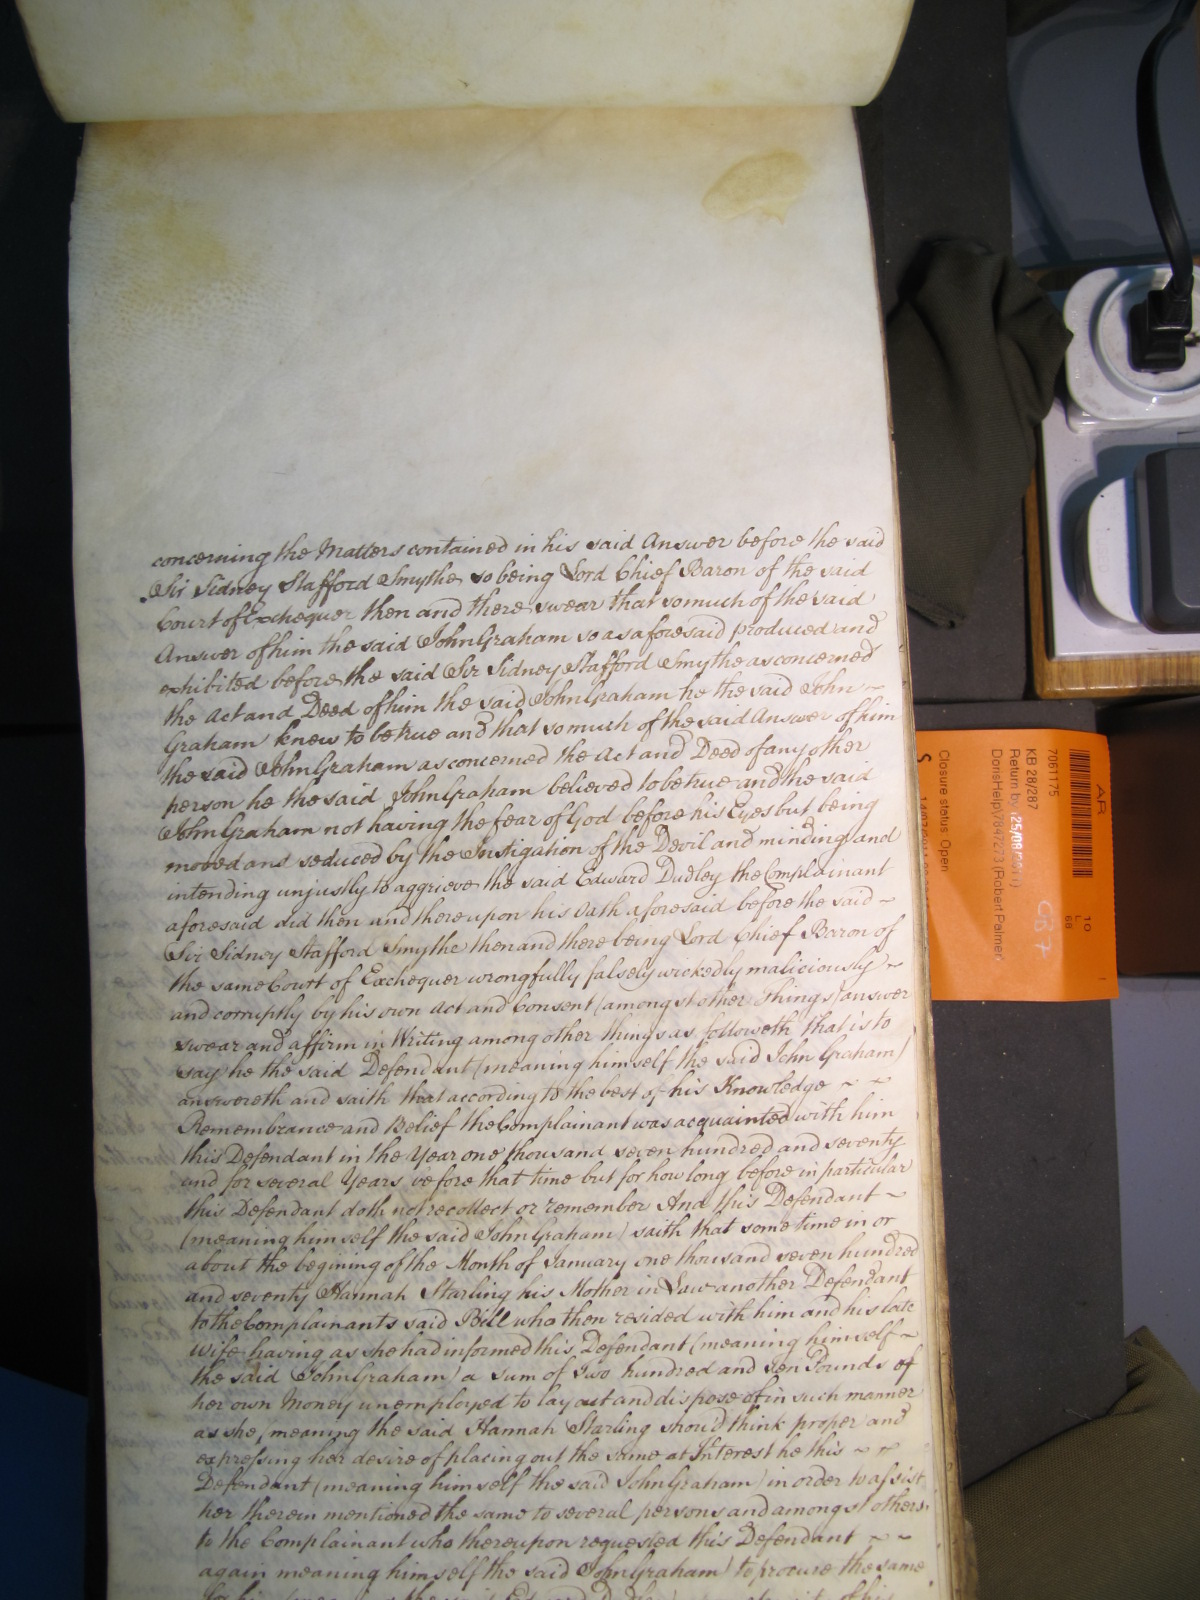 concerning the Matters contained in his said Answer before the said
Sir Sidney Stafford Smythe so being Lord Chief Baron of the said
Court of Exchequer then and there swear that so much of the said
Answer of him the said John Graham so as aforesaid produced and
exhibited before the said Sir Sidney Stafford Smythe as concerned
the Act and Deed of him the said John Graham he the said John ~
Graham knew to be true and that so much of the said Answer of him
the said John Graham as concerned the Act and Deed of any other
person he the said John Graham believed to be true and the said
John Graham not having the fear of God before his Eyes but being
moved and seduced by the Instigation of the Devil and minding and
intending unjustly to aggrieve the said Edward Dudley the Complainant
aforesaid did then and there upon his Oath aforesaid before the said ~
Sir Sidney Stafford Smythe then and there being Lord Chief Baron of
the same Court of Exchequer wrongfully falsely wickedly maliciously ~
and corruptly by his own Act and Consent (amongst other Things) answer
swear and affirm in Writing among other things as followeth that is to
say he the said Defendant (meaning himself the said John Graham)
answereth and saith that according to the best of his Knowledge ~ ~
Remembrance and Belief the Complainant was acquainted with him
this Defendant in the Year one thousand seven hundred and seventy
and for several Years before that time but for how long before in particular
this Defendant doth not recollect or remember And this Defendant ~
(meaning himself the said John Graham) saith that some time in or
about the begining of the Month of January one thousand seven hundred
and seventy Hannah Starling his Mother in Law another Defendant
to the Complainants said Bill who then resided with him and his late
Wife having as she had informed this Defendant (meaning himself ~
the said John Graham) a Sum of Two hundred and Ten Pounds of
her own Money unemployed to lay out and dispose of in such manner
as she (meaning the said Hannah Starling should think proper and
expressing her desire of placing out the same at Interest he this ~ ~
Defendant (meaning himself the said John Graham) in order to assist
her therein mentioned the same to several persons and amongst others
to the Complainant who thereupon requested this Defendant ~ ~
again meaning himself the said John Graham) to procure the same
AR
7061175
KB 28/287
Return by (25/08/2011)
DorisHelp\7847273 (Robert Palmer
Closure status: Open
S